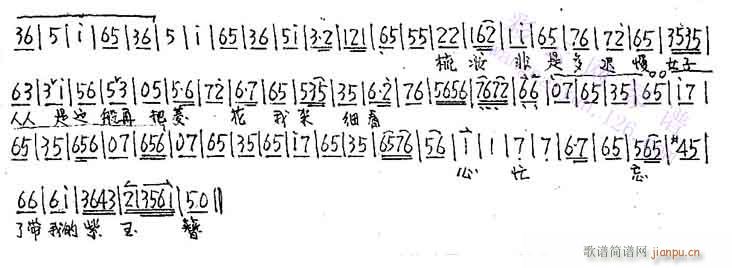 36|5|i|65|36|5|i|65|36|5i|3·2|121|65|55|22|162|ii|65|76|72|65|3535|
梳妆 非是多迟慢 女子
63|3i|56|53|05|5·6|72|6·7|65|535|35|6·2|76|5656|7672|66|07|65|35|65|i7|
人人是这般再把菱 花 我来细看
65|35|656|07|656|07|65|35|65|i7|65|35|6576|56|i|1|7|7|6·7|65|565|#45|
心 忙 忘
66|6i|3643|213561|5.0||
了带我的紫玉 簪
歌谱简谱网
jianpu.cn